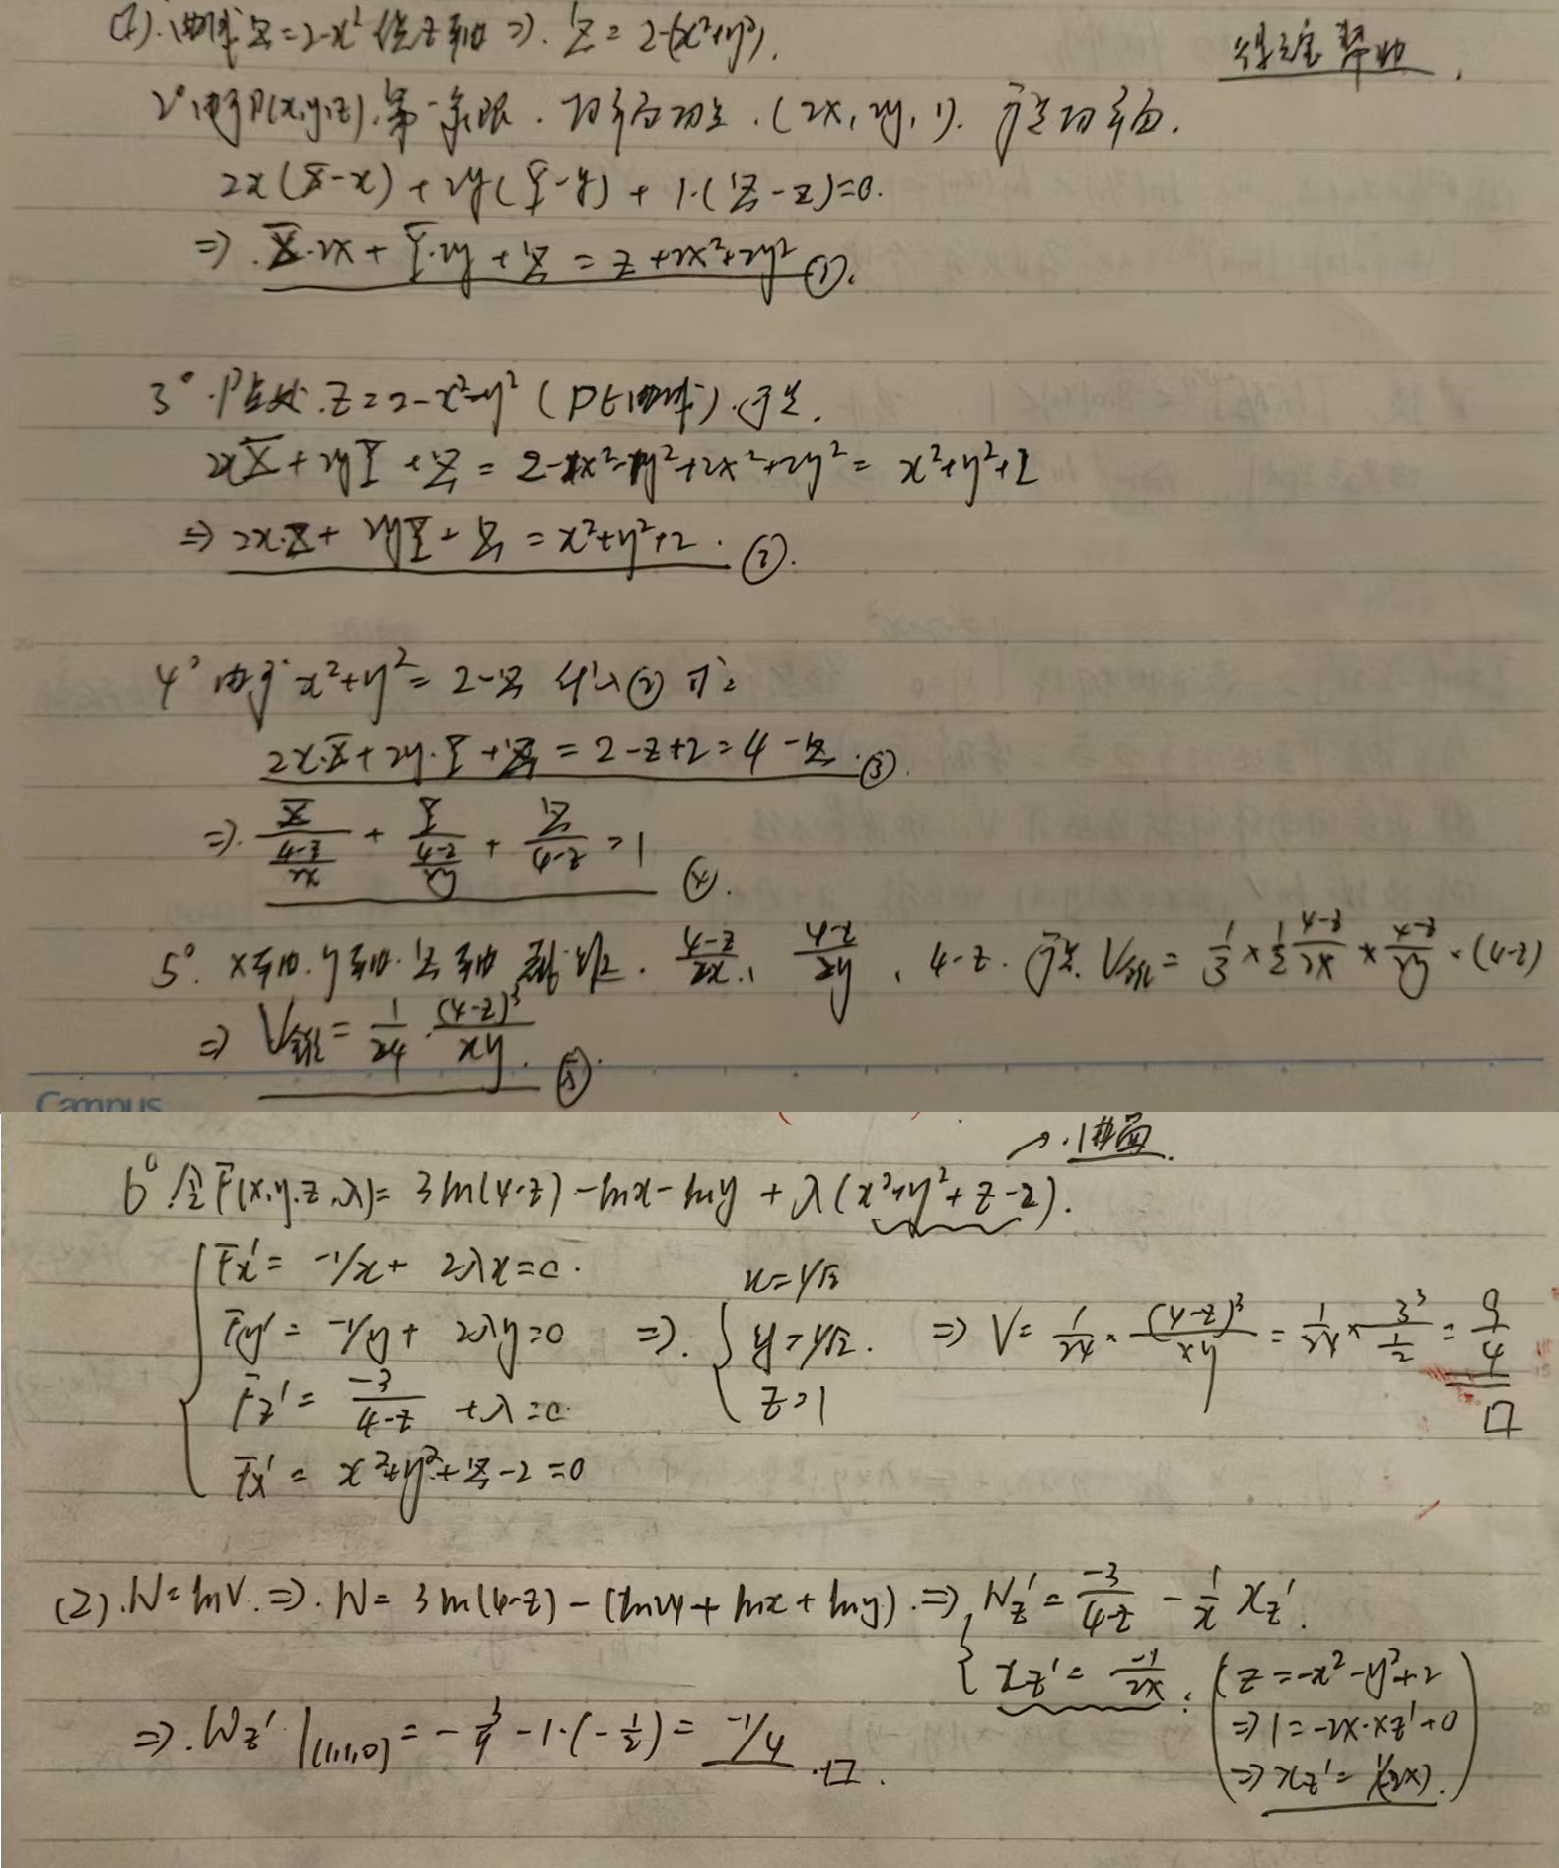 (1). 曲线 z=2-x² 绕z轴 ⇒. Z=2-(x²+y²).
得之宝 帮助.
2° 由于P(x,y,z). 第一象限. 切平面 . (2x, 2y, 1). 于是切平面.
2x(X-x)+2y(Y-y)+1·(Z-z)=0.
⇒. X·2x+Y·2y+Z = z+2x²+2y² ①.
3°. P点处. z=2-x²-y² (P在曲线). 于是.
2xX+2yY+Z = 2-x²-y²+2x²+2y² = x²+y²+2
⇒ 2x·X+2yY+Z = x²+y²+2. ②.
4° 由于 x²+y²=2-z 代入② 可:
2x·X+2y·Y+Z = 2-z+2 = 4-z. ③.
⇒. X/((4-z)/2x) + Y/((4-z)/2y) + Z/(4-z) = 1 ④.
5°. x轴. y轴. z轴 截距. (4-z)/2x, (4-z)/2y, 4-z. 于是. V锥 = 1/3 × 1/2 (4-z)/2x × (4-z)/2y · (4-z)
⇒ V锥 = 1/24 · (4-z)³/xy. ⑤.
Campus
→. 曲面.
6°. 令F(x,y,z,λ)= 3ln(4-z)-lnx-lny+λ(x²+y²+z-2).
Fx' = -1/x + 2λx=0.
Fy' = -1/y + 2λy=0
Fz' = -3/(4-z) + λ=0
Fλ' = x²+y²+z-2=0
⇒.
x=1/√2
y=1/√2.
z=1
⇒ V = 1/24 × (4-z)³/xy = 1/24 × 3³/(1/2) = 9/4 □
(2). W=lnV. ⇒. W = 3ln(4-z)-(ln24+lnx+lny). ⇒, Wz' = -3/(4-z) - 1/x xz'.
xz' = -1/2x. : (z=-x²-y²+2
⇒ 1=-2x·xz'+0
⇒ xz' = 1/(-2x).)
⇒. Wz' |(1,1,0) = -3/4 - 1·(-1/2) = -1/4 . □.